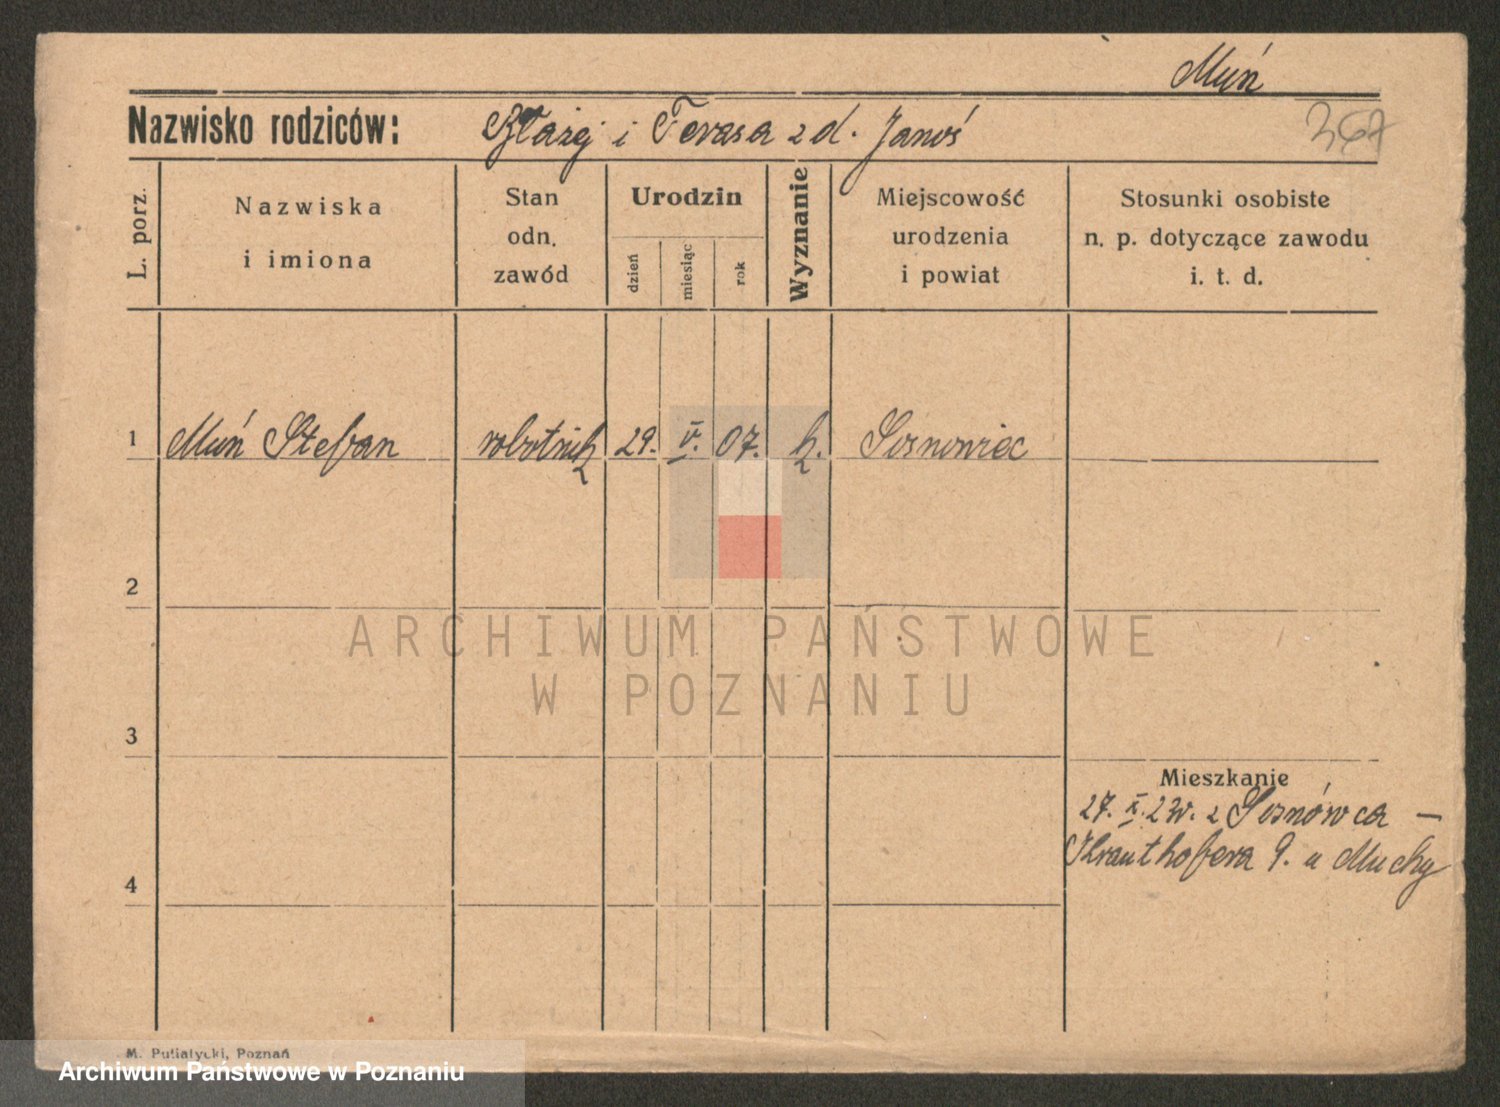 Muń
Nazwisko rodziców: Błażej i Terasa z d. Janoś
367
L. porz.
Nazwiska
i imiona
Stan
odn.
zawód
Urodzin
dzień
miesiąc
rok
Wyznanie
Miejscowość
urodzenia
i powiat
Stosunki osobiste
n. p. dotyczące zawodu
i. t. d.
1 Muń Stefan robotnik 29. V. 07. k. Sosnowiec
2
3
4
Mieszkanie
27. X. 23r. z Sosnówca —
Krauthofera 9. u Muchy
M. Putiatycki, Poznań
ARCHIWUM PAŃSTWOWE
W POZNANIU
Archiwum Państwowe w Poznaniu